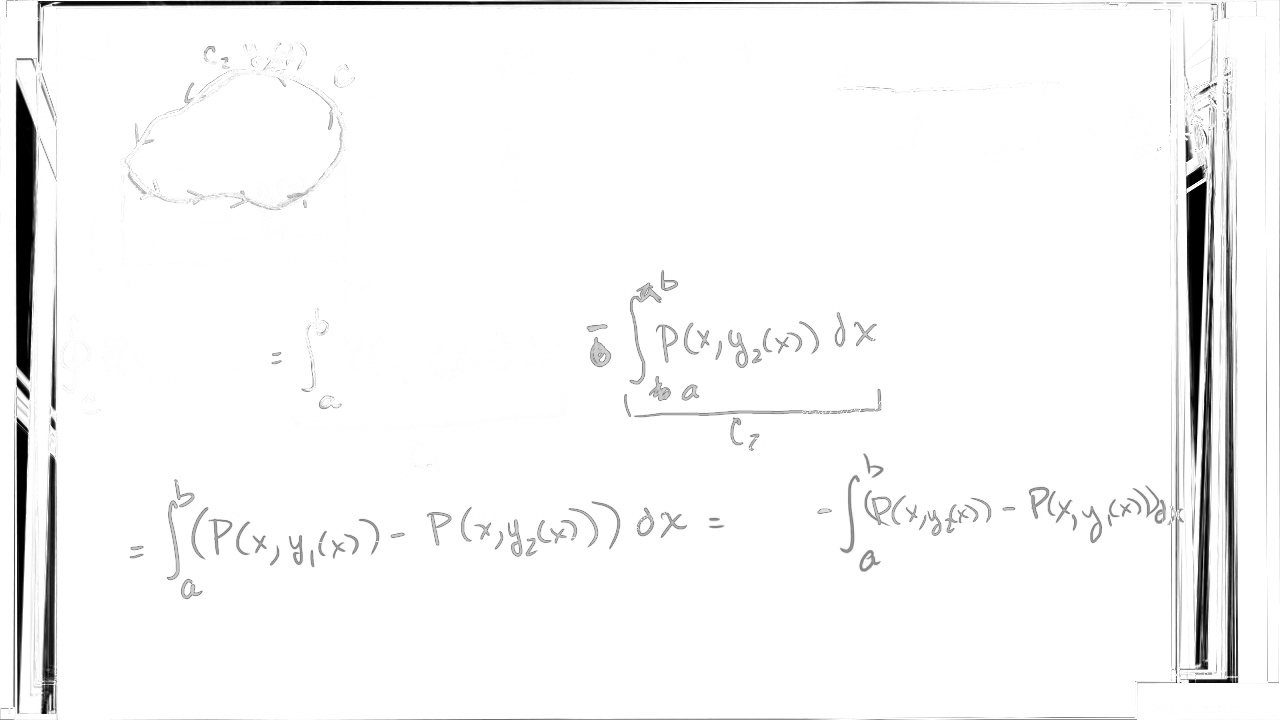 C₂ y₂(x) C
= ∫_a^b - ∫_a^b P(x, y₂(x)) dx
C₂
= ∫_a^b (P(x, y₁(x)) - P(x, y₂(x))) dx = - ∫_a^b (P(x, y₂(x)) - P(x, y₁(x))) dx